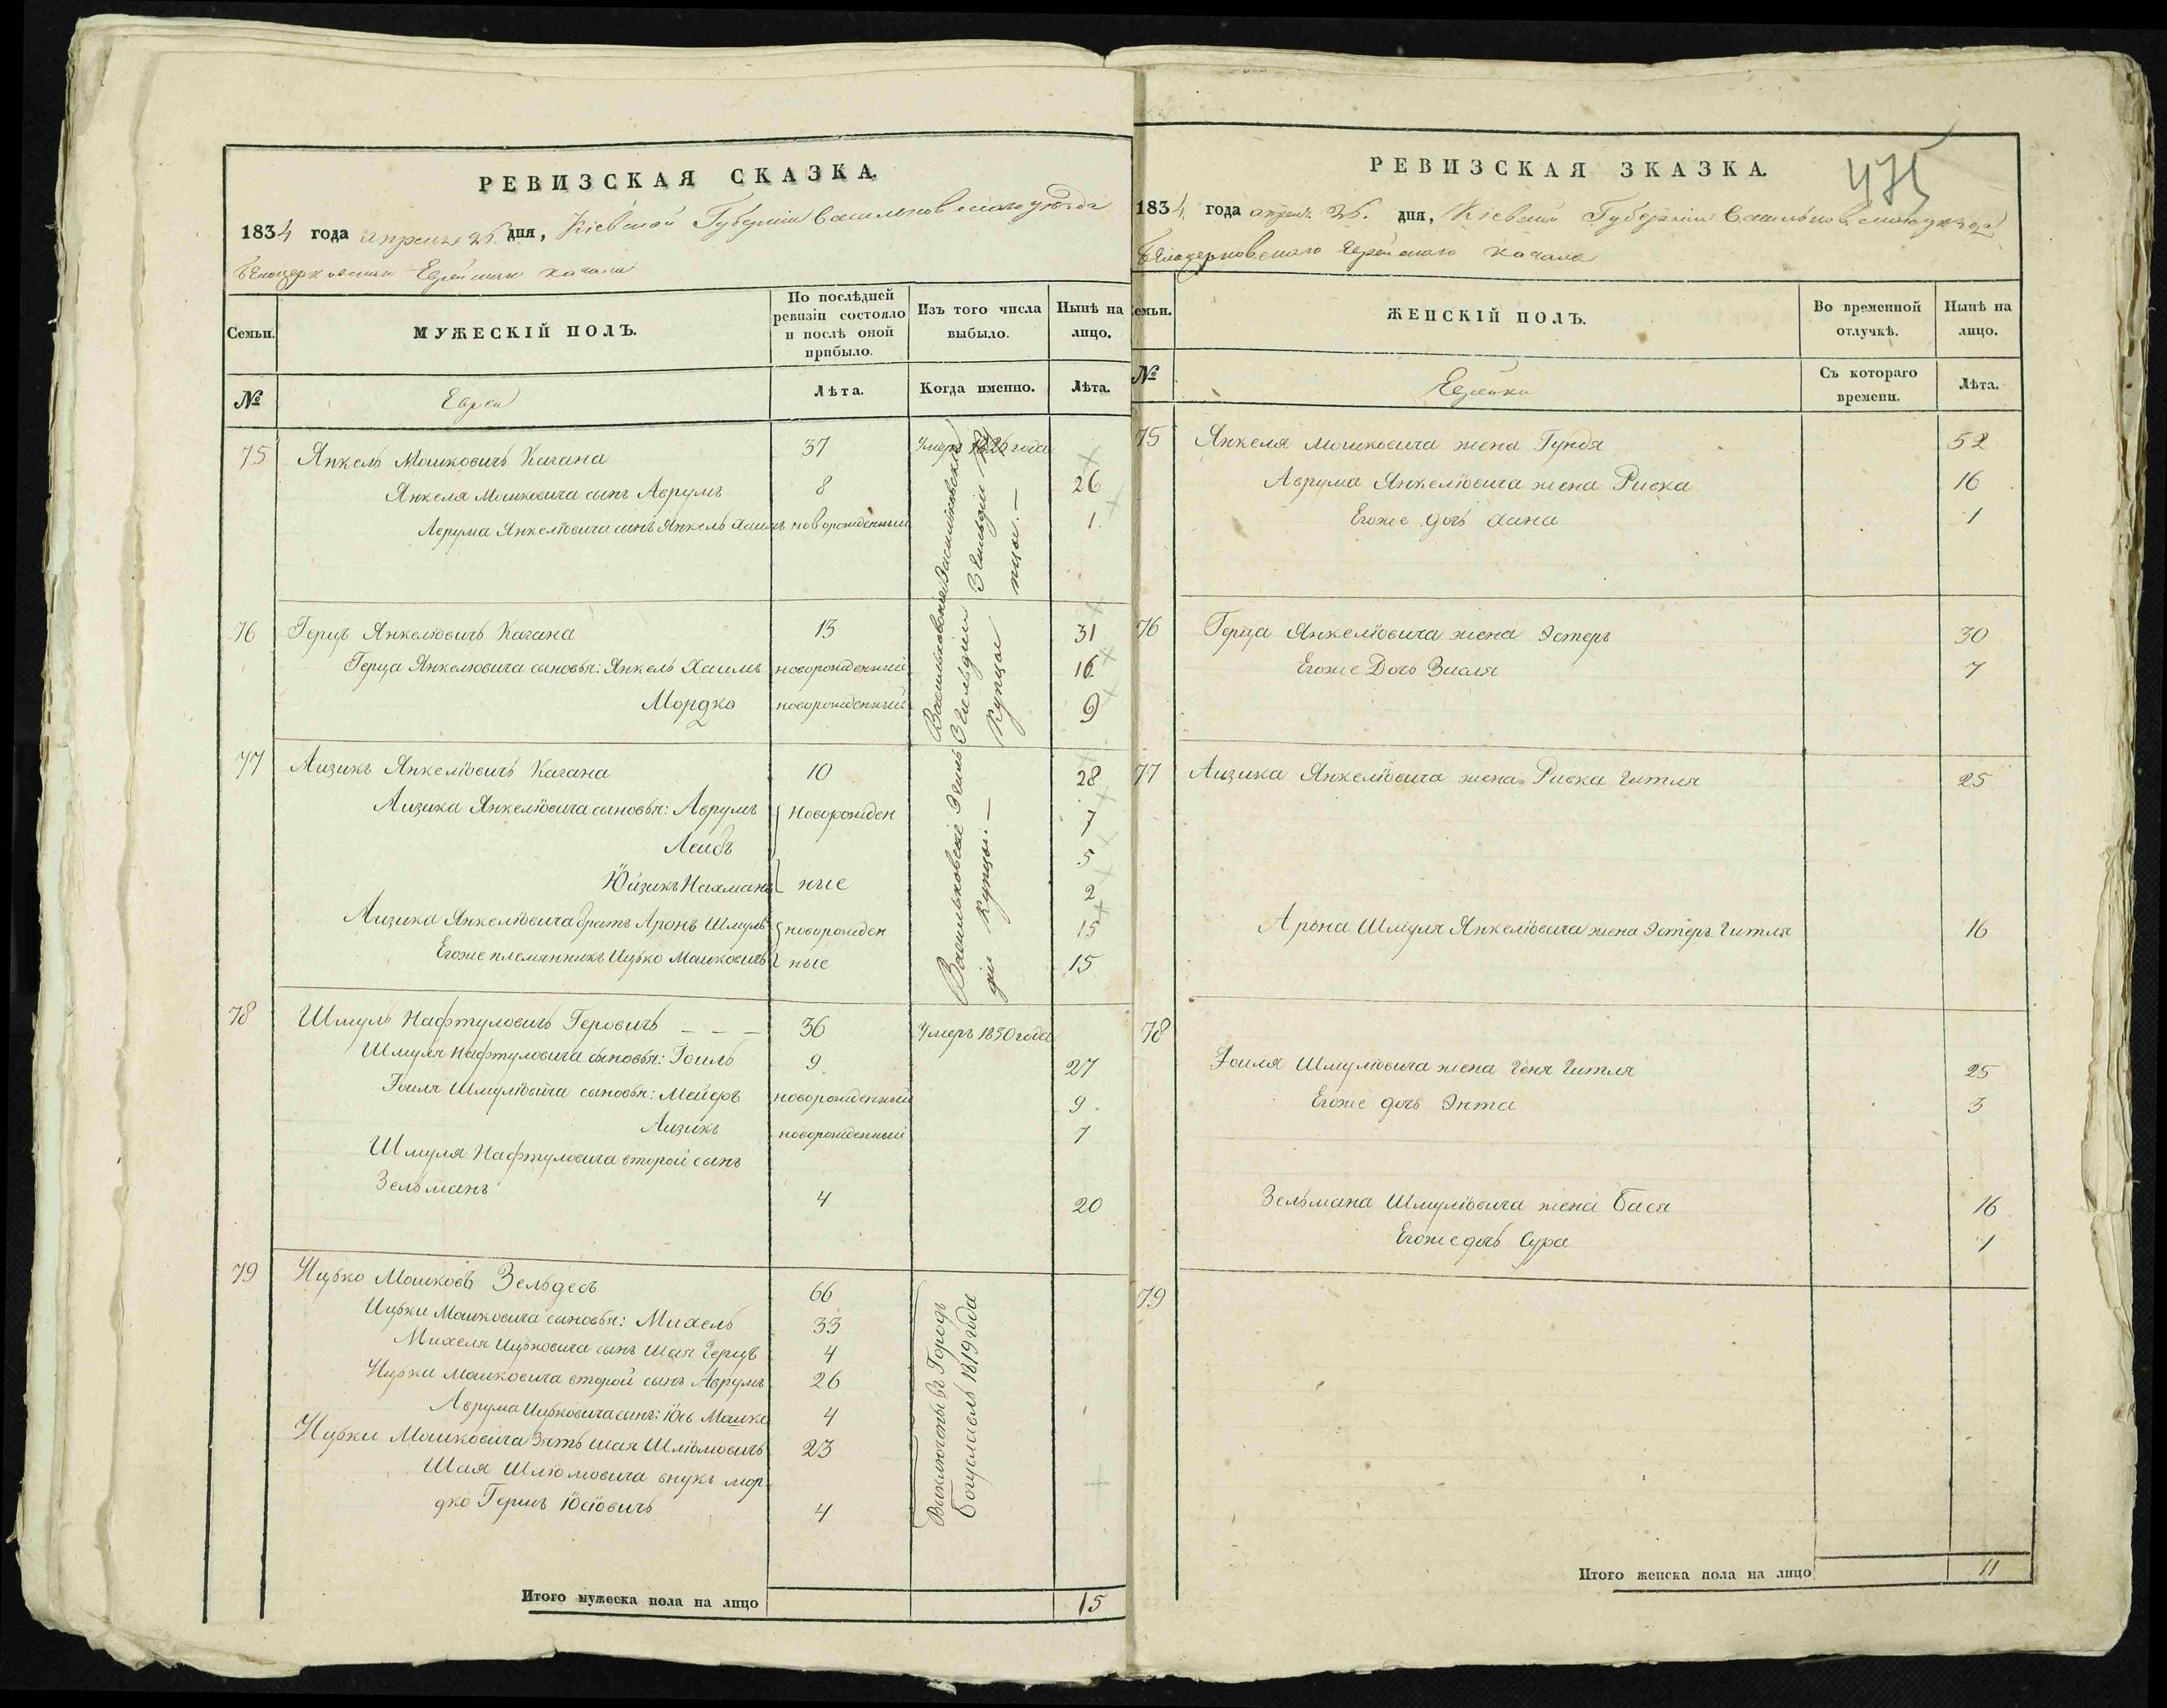 РЕВИЗСКАЯ СКАЗКА.
1834 года апреля 26. дня, Кіевской Губерніи Васильковскаго уѣзда
Бѣлоцерковскаго Еврейскаго кагала
Семьи.
МУЖЕСКІЙ ПОЛЪ.
По послѣдней ревизіи состояло и послѣ оной прибыло.
Изъ того числа выбыло.
Нынѣ на лицо.
№
Евреи
Лѣта.
Когда именно.
Лѣта.
75 Янкель Мошковичъ Кагана 37 Умеръ года
Янкеля Мошковича сынъ Аврумъ 8 26
Аврума Янкеліовича сынъ Янкель Хаимъ новорожденный 1
Васильковскіе 3 Гильдіи
76 Герцъ Янкеліовичъ Кагана 13 31
Герца Янкеліовича сыновья: Янкель Хаимъ новорожденный 16
Мордко новорожденный 9
Васильковскіе 3 Гильдіи Купцы
77 Аизикъ Янкеліовичъ Кагана 10 28
Аизика Янкеліовича сыновья: Аврумъ Новорожден 7
Леибъ 5
Юйзикъ Нахманъ ные 2
Аизика Янкеліовича братъ Аронъ Шмуль новорожден 15
Егоже племянникъ Ицько Мошковичъ ные 15
Васильковскіе 3 Гильдіи Купцы.
78 Шмуль Нафтуловичъ Геровичъ - - - 36 Умеръ 1830 года
Шмуля Нафтуловича сыновья: Іоиль 9 27
Іоиля Шмуліовича сыновья: Мейеръ новорожденный 9
Аизикъ новорожденный 7
Шмуля Нафтуловича второй сынъ
Зельманъ 4 20
79 Ицько Мошковъ Зельдесъ 66
Ицьки Мошковича сыновья: Михель 33
Михеля Ицьковича сынъ Шая Герцъ 4
Ицьки Мошковича второй сынъ Аврумъ 26
Аврума Ицьковича сынъ: Іось Мошко 4
Ицьки Мошковича Зять Шая Шліомовичъ 23
Шая Шліомовича внукъ Мор-
дко Гершъ Іосіовичъ 4
Виключены въ Городъ
Богуславль 1819 года
Итого мужеска пола на лицо 15
РЕВИЗСКАЯ ЗКАЗКА.
475
1834 года апреля 26. дня, Кіевской Губерніи Васильковскаго уѣзда
Бѣлоцерковскаго Еврейскаго кагала
Семьи.
ЖЕНСКІЙ ПОЛЪ.
Во временной отлучкѣ.
Нынѣ на лицо.
№
Еврейки
Съ котораго времени.
Лѣта.
75 Янкеля Мошковича жена Гундя 52
Аврума Янкеліовича жена Ривка 16
Егоже дочь Хана 1
76 Герца Янкеліовича жена Эстеръ 30
Егоже Дочь 7
77 Аизика Янкеліовича жена Ривка Гитля 25
Арона Шмуля Янкеліовича жена Эстеръ Гитля 16
78
Іоиля Шмуліовича жена Геня Гитля 25
Егоже дочь Энта 3
Зельмана Шмуліовича жена Бася 16
Егоже дочь Сура 1
79
Итого женска пола на лицо 11